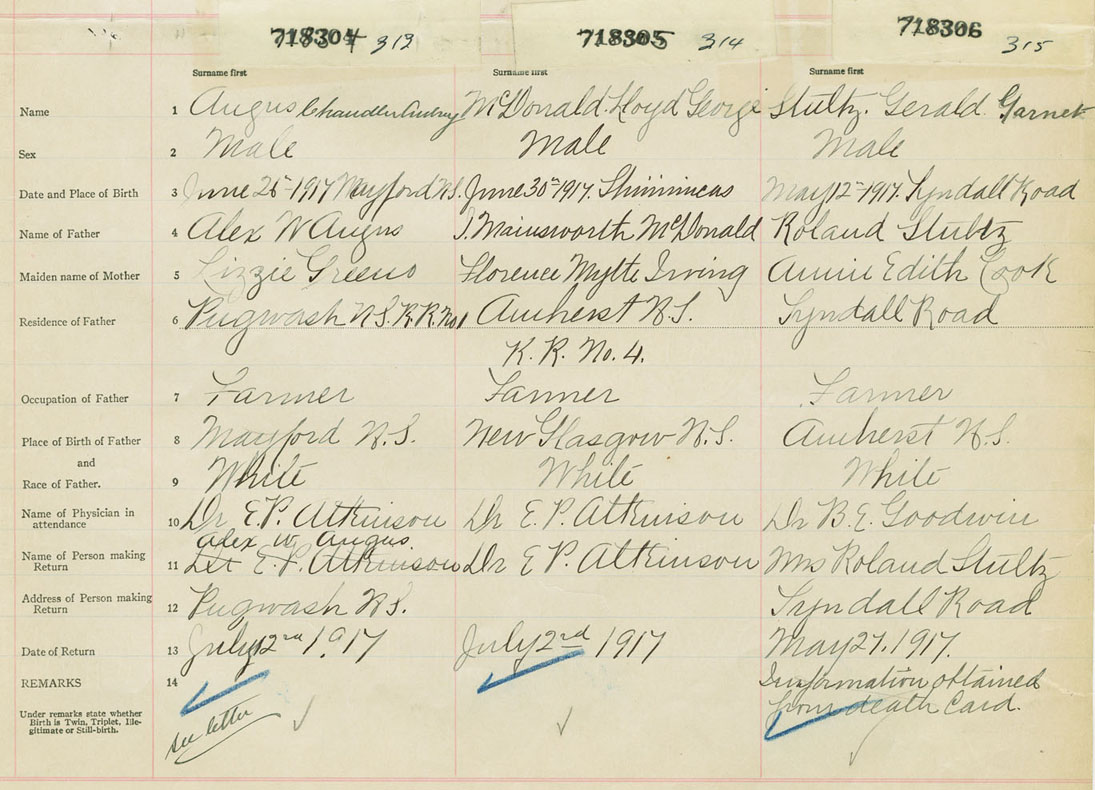 718304 313 718305 314 718306 315
Surname first Surname first Surname first
Name 1 Angus Chandler Aubrey McDonald. Lloyd George Stultz. Gerald Garnet
Sex 2 Male Male Male
Date and Place of Birth 3 June 26 1917 N.S. June 30th 1917. Shinimicas May 12 1917. Tyndall Road
Name of Father 4 Alex W Angus McDonald Roland Stultz
Maiden name of Mother 5 Lizzie Greeno Florence Irving Annie Edith Cook
Residence of Father 6 Pugwash N.S. R.R. No 1 Amherst N.S. Tyndall Road
R. R. No. 4.
Occupation of Father 7 Farmer Farmer Farmer
Place of Birth of Father 8 N.S. New Glasgow N.S. Amherst N.S.
and
Race of Father. 9 White White White
Name of Physician in
attendance 10 Dr E.P. Atkinson Dr E.P. Atkinson Dr B.E. Goodwin
Alex W. Angus.
Name of Person making
Return 11 E.P. Atkinson Dr E P. Atkinson Mrs Roland Stultz
Address of Person making
Return 12 Pugwash N.S. Tyndall Road
Date of Return 13 July 2nd 1917 July 2nd 1917 May 27. 1917.
REMARKS 14 Information obtained
from death Card.
Under remarks state whether
Birth is Twin, Triplet, Ille-
gitimate or Still-birth.
see letter